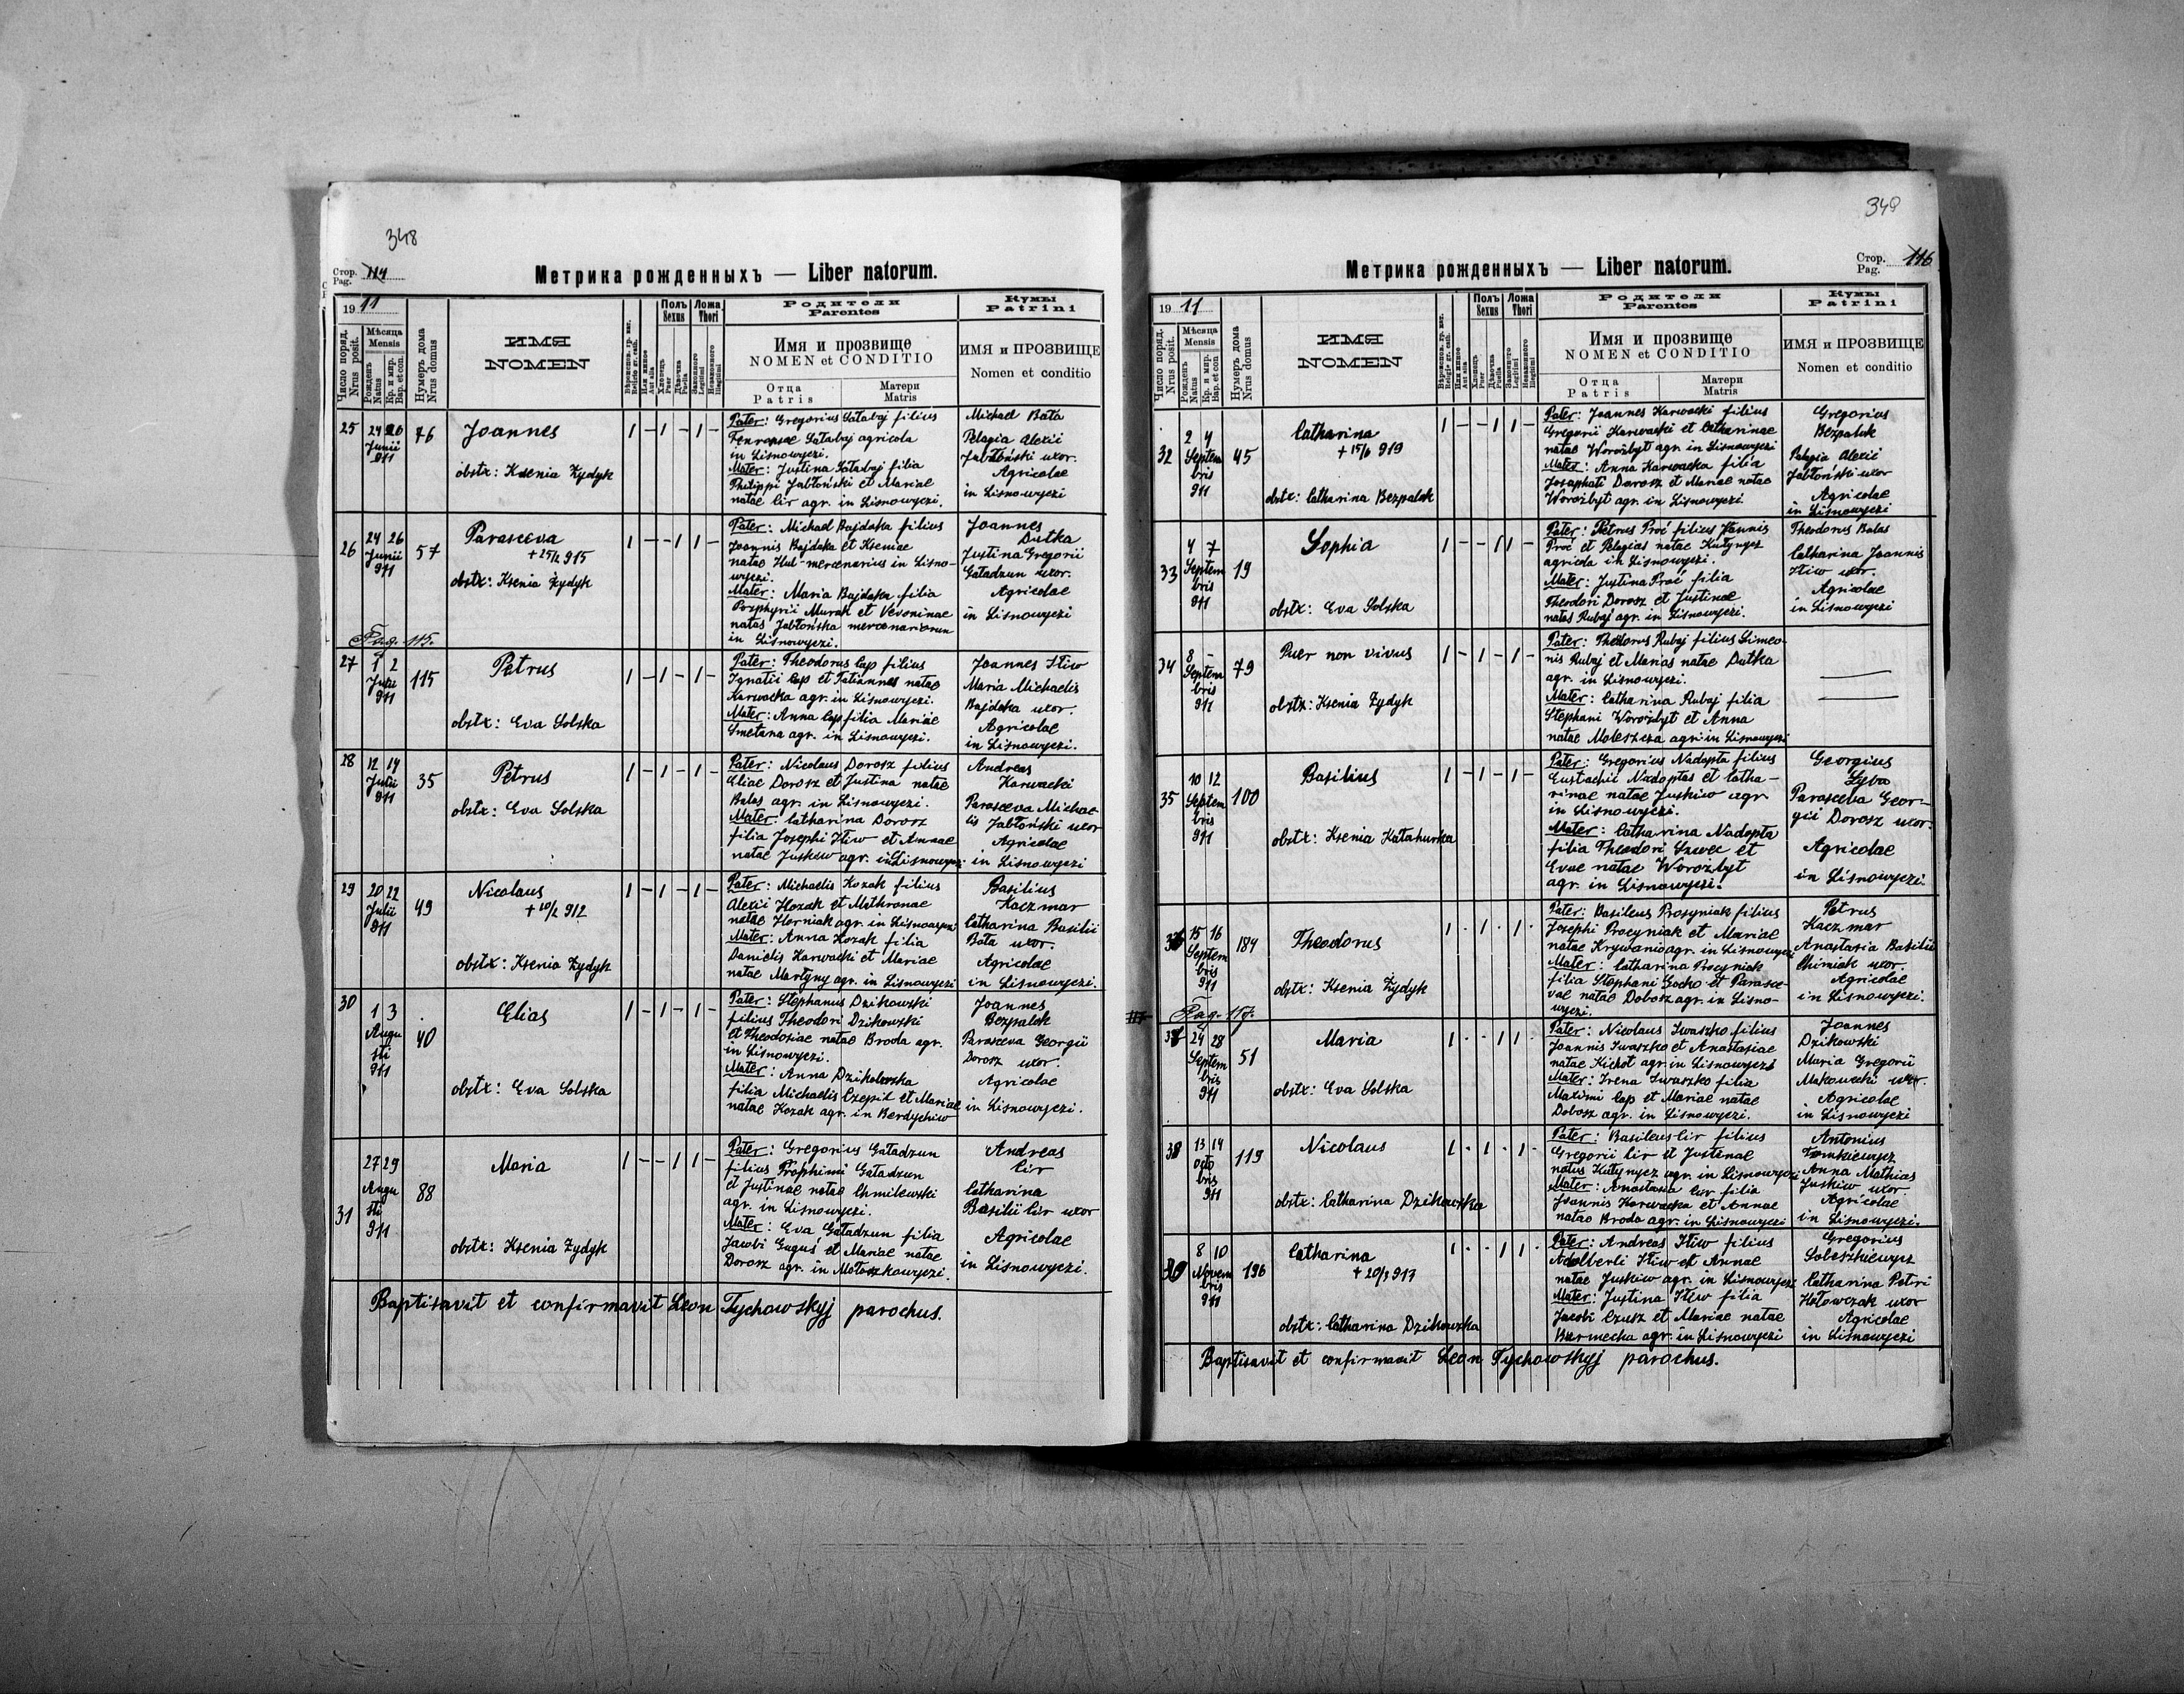 348
Стор.
Pag. 114
Метрика рожденныхъ — Liber natorum.
1911
Число поряд.
Nrus posit.
Мѣсяца
Mensis
Рожденъ
Natus
Кр. и мир.
Bap. et con.
Нумеръ дома
Nrus domus
ИМЯ
NOMEN
Полъ
Sexus
Ложа
Thori
Родители
Parentes
Имя и прозвище
NOMEN et CONDITIO
Отца
Patris
Матери
Matris
Кумы
Patrini
ИМЯ и ПРОЗВИЩЕ
Nomen et conditio
25
24 26
Junii
911
76
Joannes
obstx: Ksenia Zydyk
1 – 1 – 1 –
Pater: Gregorius Sałabaj filius
Sałabaj agricola
in Lisnowyczi.
Mater: Justina Sałabaj filia
Philippi Jabłoński et Mariae
natae Cir agr. in Lisnowyczi.
Michael Bała
Pelagia Alexii
Jabłoński uxor.
Agricolae
in Lisnowyczi
26
24 26
Junii
911
57
Parasceva
+ 25/2 915
obstx: Ksenia Zydyk
1 – – 1 1 –
Pater: Michael Bajdaka filius
Joannis Bajdaka et Kseniae
natae Hul mercenarius in Lisno-
wyczi.
Mater: Maria Bajdaka filia
Porphyrii Murak et Veroninae
natas Jabłońska mercenariorum
in Lisnowyczi.
Joannes
Dutka
Justina Gregorii
Gaładzun uxor.
Agricolae
in Lisnowyczi
Pag. 115.
27
1 2
Julii
911
115
Petrus
obstx: Eva Solska
1 – 1 – 1 –
Pater: Theodorus Cap filius
Ignatii Cap et Tatiannes natae
Karwacka agr. in Lisnowyczi.
Mater: Anna Cap filia Mariae
Smetana agr. in Lisnowyczi.
Joannes Iliw
Maria Michaelis
Bajdaka uxor.
Agricolae
in Lisnowyczi.
28
12 14
Julii
911
35
Petrus
obstx: Eva Solska
1 – 1 – 1 –
Pater: Nicolaus Dorosz filius
Eliae Dorosz et Justina natae
Balas agr. in Lisnowyczi.
Mater: Catharina Dorosz
filia Josephi Iliw et Annae
natae Juskiw agr. in Lisnowyczi
Andreas
Karwacki
Parasceva Michae-
lis Jabłoński uxor
Agricolae
in Lisnowyczi
29
20 22
Julii
911
49
Nicolaus
+ 10/2 912
obstx: Ksenia Zydyk
1 – 1 – 1 –
Pater: Michaelis Kozak filius
Alexii Kozak et Mithronae
natae Horniak agr. in Lisnowyczi
Mater: Anna Kozak filia
Danielis Karwacki et Mariae
natae Martyny agr. in Lisnowyczi
Basilius
Kaczmar
Catharina Basilii
Bała uxor.
Agricolae
in Lisnowyczi.
30
1 3
Augu
sti
911
40
Elias
obstx: Eva Solska
1 – 1 – 1 –
Pater: Stephanus Dzikowski
filius Theodori Dzikowski
et Theodosiae natae Broda agr.
in Lisnowyczi.
Mater: Anna Dzikowska
filia Michaelis Czepil et Mariae
natae Kozak agr. in Berdychiw
Joannes
Bezpalok
Parasceva Georgii
Dorosz uxor.
Agricolae
in Lisnowyczi.
31
27 29
Augu
sti
911
88
Maria
obstx: Ksenia Zydyk
1 – – 1 1 –
Pater: Gregorius Gaładzun
filius Trophimi Gaładzun
et Justinae natae Chmilewski
agr. in Lisnowyczi.
Mater: Eva Gaładzun filia
Jacobi Guguś et Mariae natae
Dorosz agr. in Mołoszkowyczi.
Andreas
Cir
Catharina
Basilii Cir uxor
Agricolae
in Lisnowyczi.
Baptisavit et confirmavit Leon Tychowskyj parochus.
349
Стор.
Pag. 116
Метрика рожденныхъ — Liber natorum.
1911
Число поряд.
Nrus posit.
Мѣсяца
Mensis
Рожденъ
Natus
Кр. и мир.
Bap. et con
Нумеръ дома
Nrus domus
ИМЯ
NOMEN
Полъ
Sexus
Ложа
Thori
Родители
Parentes
Имя и прозвище
NOMEN et CONDITIO
Отца
Patris
Матери
Matris
Кумы
Patrini
ИМЯ и ПРОЗВИЩЕ
Nomen et conditio
32
2 4
Septem
bris
911
45
Catharina
+ 15/6 919
obstx: Catharina Bezpalok
1 – – 1 1 –
Pater: Joannes Karwacki filius
Gregorii Karwacki et Catharinae
natae Worożbyt agr. in Lisnowyczi
Mater: Anna Karwacka filia
Josaphati Dorosz et Mariae natae
Worożbyt agr. in Lisnowyczi
Gregorius
Bezpalok
Pelagia Alexii
Jabłoński uxor
Agricolae
in Lisnowyczi
33
4 7
Septem
bris
911
19
Sophia
obstx: Eva Solska
1 – – 1 1 –
Pater: Petrus Proć filius Joannis
Proć et Pelagias natae Kułynycz
agricola in Lisnowyczi.
Mater: Justina Proć filia
Theodori Dorosz et Justinae
natas Rubaj agr. in Lisnowyczi.
Theodorus Balas
Catharina Joannis
Iliw uxor.
Agricolae
in Lisnowyczi
34
8 –
Septem
bris
911
79
Puer non vivus
obstx: Ksenia Zydyk
1 – 1 – 1 –
Pater: Theodorus Rubaj filius Simeo-
nis Rubaj et Marias natae Dutka
agr. in Lisnowyczi.
Mater: Catharina Rubaj filia
Stephani Worożbyt et Anna
natae Moleszcza agr. in Lisnowyczi
35
10 12
Septem
bris
911
100
Basilius
obstx: Ksenia Katahurka
1 – 1 – 1 –
Pater: Gregorius Nadopta filius
Eustachii Nadoptas et Catha-
rinae natae Juskiw agr
in Lisnowyczi.
Mater: Catharina Nadopta
filia Theodori Szwec et
Evae natae Worożbyt
agr. in Lisnowyczi.
Georgius
Dyba
Parasceva Geor-
gii Dorosz uxor.
Agricolae
in Lisnowyczi.
36
15 16
Septem
bris
911
184
Theodorus
obstx: Ksenia Żydyk
1 · 1 · 1 ·
Pater: Basileus Procyniak filius
Josephi Procyniak et Mariae
natae Krywanio agr. in Lisnowyczi
Mater: Catharina Procyniak
filia Stephani Gocko et Parasce-
vae natae Dobosz agr. in Lisno-
wyczi.
Petrus
Kaczmar
Anastasia Basilii
Chimiak uxor.
Agricolae
in Lisnowyczi.
Pag. 117.
37
24 28
Septem
bris
911
51
Maria
obstx: Eva Solska
1 · · 1 1 ·
Pater: Nicolaus Iwaszko filius
Joannis Iwaszko et Anastasiae
natae Kichot agr. in Lisnowyczi
Mater: Irena Iwaszko filia
Maximi Cap et Mariae natae
Dobosz agr. in Lisnowyczi.
Joannes
Dzikowski
Maria Gregorii
Makowecki uxor.
Agricolae
in Lisnowyczi
38
13 14
Octo
bris
911
119
Nicolaus
obstx: Catharina Dzikowska
1 · 1 · 1 ·
Pater: Basileus Cir filius
Gregorii Cir et Justinae
natus Kułynycz agr. in Lisnowyczi
Mater: Anastasia Cir filia
Joannis Karwacka et Annae
natae Broda agr. in Lisnowyczi
Antonius
Tomkiewycz
Anna Mathias
Juskiw uxor.
Agricolae
in Lisnowyczi.
39
8 10
Novem
bris
911
196
Catharina
+ 20/3 917
obstx: Catharina Dzikowska
1 · · 1 1 ·
Pater: Andreas Iliw filius
Adalberti Iliw et Annae
natae Juskiw agr. in Lisnowyczi
Mater: Justina Iliw filia
Jacobi Czusz et Mariae natae
Burmecha agr. in Lisnowyczi
Gregorius
Soleszkiewycz
Catharina Petri
Hołowczak uxor
Agricolae
in Lisnowyczi
Baptisavit et confirmavit Leon Tychowskyj parochus.